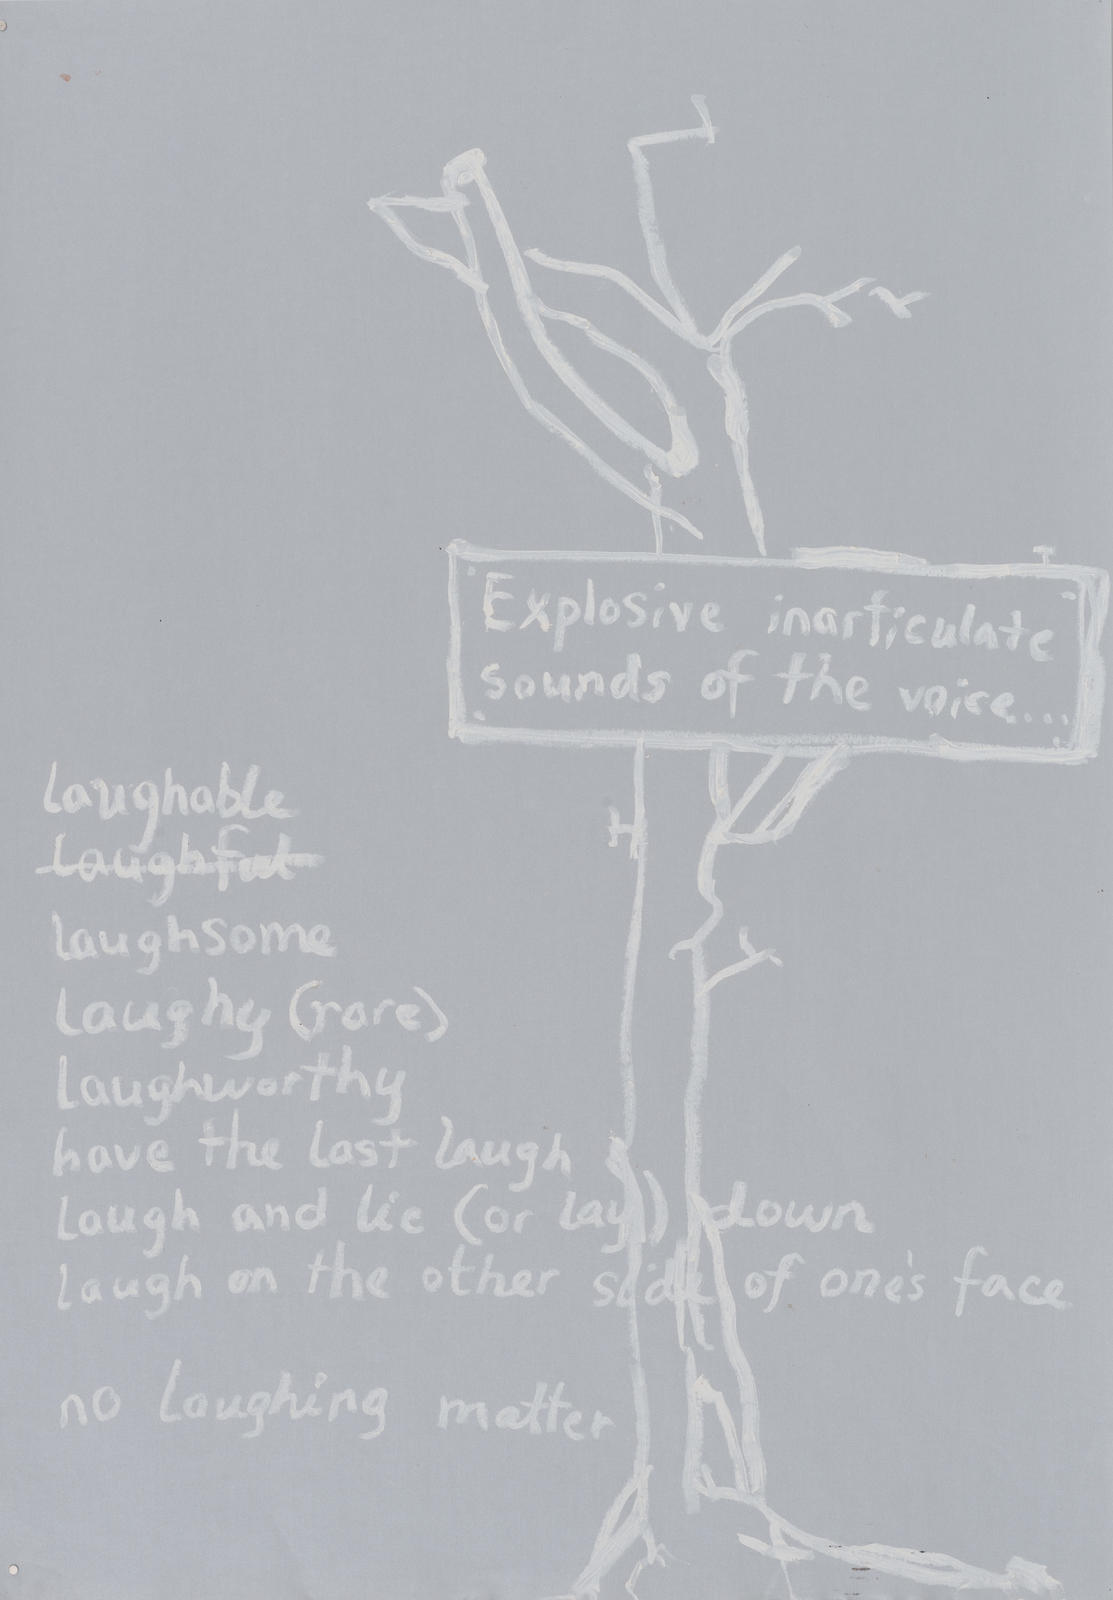 Explosive inarticulate
sounds of the voice....
laughable
laughful
laughsome
laughy (rare)
laughworthy
have the last laugh
laugh and lie (or lay) down
laugh on the other side of one's face
no laughing matter